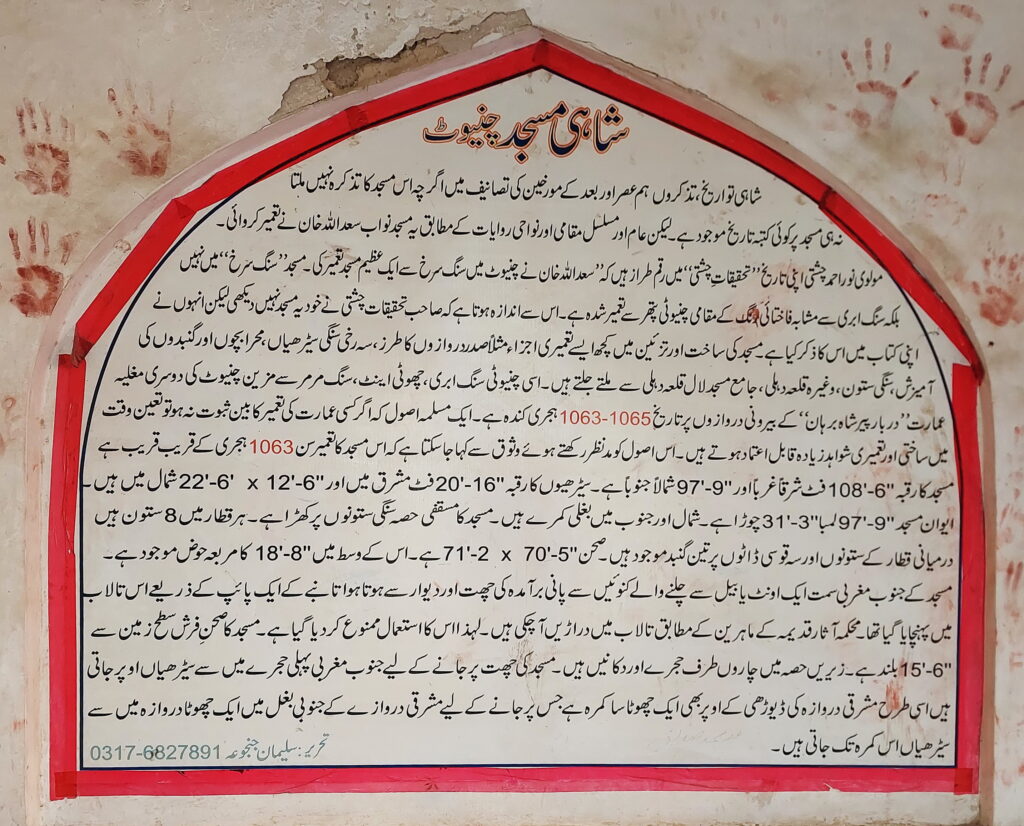 شاہی مسجد چنیوٹ
شاہی تواریخ، تذکروں ہم عصر اور بعد کے مورخین کی تصانیف میں اگرچہ اس مسجد کا تذکرہ نہیں ملتا
نہ ہی مسجد پر کوئی کتبہ تاریخ موجود ہے۔ لیکن عام اور مسلسل مقامی اور نواحی روایات کے مطابق یہ مسجد نواب سعد اللہ خان نے تعمیر کروائی۔
مولوی نور احمد چشتی اپنی تاریخ "تحقیقات چشتی" میں رقم طراز ہیں کہ "سعد اللہ خان نے چنیوٹ میں سنگ سرخ سے ایک عظیم مسجد تعمیر کی۔ مسجد "سنگ سرخ" میں نہیں
بلکہ سنگ ابری سے مشابہ فاختائی رنگ کے مقامی چنیوٹی پتھر سے تعمیر شدہ ہے۔ اس سے اندازہ ہوتا ہے کہ صاحب تحقیقات چشتی نے خود یہ مسجد نہیں دیکھی لیکن انہوں نے
اپنی کتاب میں اس کا ذکر کیا ہے۔ مسجد کی ساخت اور تزئین میں کچھ ایسے تعمیری اجزاء مثلاً صدر دروازوں کا طرز، سہ رخی سنگی سیڑھیاں، محرابچوں اور گنبدوں کی
آمیزش، سنگی ستون، وغیرہ قلعہ دہلی، جامع مسجد لال قلعہ دہلی سے ملتے جلتے ہیں۔ اسی چنیوٹی سنگ ابری، چھوٹی اینٹ، سنگ مرمر سے مزین چنیوٹ کی دوسری مغلیہ
عمارت "دربار پیر شاہ برہان" کے بیرونی دروازوں پر تاریخ 1063-1065 ہجری کندہ ہے۔ ایک مسلمہ اصول کہ اگر کسی عمارت کی تعمیر کا بین ثبوت نہ ہو تو تعین وقت
میں ساختی اور تعمیری شواہد زیادہ قابل اعتماد ہوتے ہیں۔ اس اصول کو مدنظر رکھتے ہوئے وثوق سے کہا جا سکتا ہے کہ اس مسجد کا تعمیر سن 1063 ہجری کے قریب قریب ہے
مسجد کا رقبہ 108'-6" فٹ شرقاً غرباً اور 97'-9" شمالاً جنوباً ہے۔ سیڑھیوں کا رقبہ 20'-16" فٹ مشرق میں اور 22'-6' x 12'-6" شمال میں ہیں۔
ایوان مسجد 97'-9" لمبا 31'-3" چوڑا ہے۔ شمال اور جنوب میں بغلی کمرے ہیں۔ مسجد کا مسقفی حصہ سنگی ستونوں پر کھڑا ہے۔ ہر قطار میں 8 ستون ہیں
درمیانی قطار کے ستونوں اور سہ قوسی ڈاٹوں پر تین گنبد موجود ہیں۔ صحن 71'-2 x 70'-5" ہے۔ اس کے وسط میں 18'-8" کا مربعہ حوض موجود ہے۔
مسجد کے جنوب مغربی سمت ایک اونٹ یا بیل سے چلنے والے کنوئیں سے پانی برآمدہ کی چھت اور دیوار سے ہوتا ہوا تانبے کے ایک پائپ کے ذریعے اس تالاب
میں پہنچایا گیا تھا۔ محکمہ آثار قدیمہ کے ماہرین کے مطابق تالاب میں دراڑیں آ چکی ہیں۔ لہذا اس کا استعمال ممنوع کر دیا گیا ہے۔ مسجد کا صحن فرش سطح زمین سے
15'-6" بلند ہے۔ زیریں حصہ میں چاروں طرف حجرے اور دکانیں ہیں۔ مسجد کی چھت پر جانے کے لیے جنوب مغربی پہلی حجرے میں سے سیڑھیاں اوپر جاتی
ہیں اسی طرح مشرقی دروازہ کی ڈیوڑھی کے اوپر بھی ایک چھوٹا سا کمرہ ہے جس پر جانے کے لیے مشرقی دروازے کے جنوبی بغل میں ایک چھوٹا دروازہ میں سے
سیڑھیاں اس کمرہ تک جاتی ہیں۔
تحریر: سلیمان جنجوعہ 0317-6827891